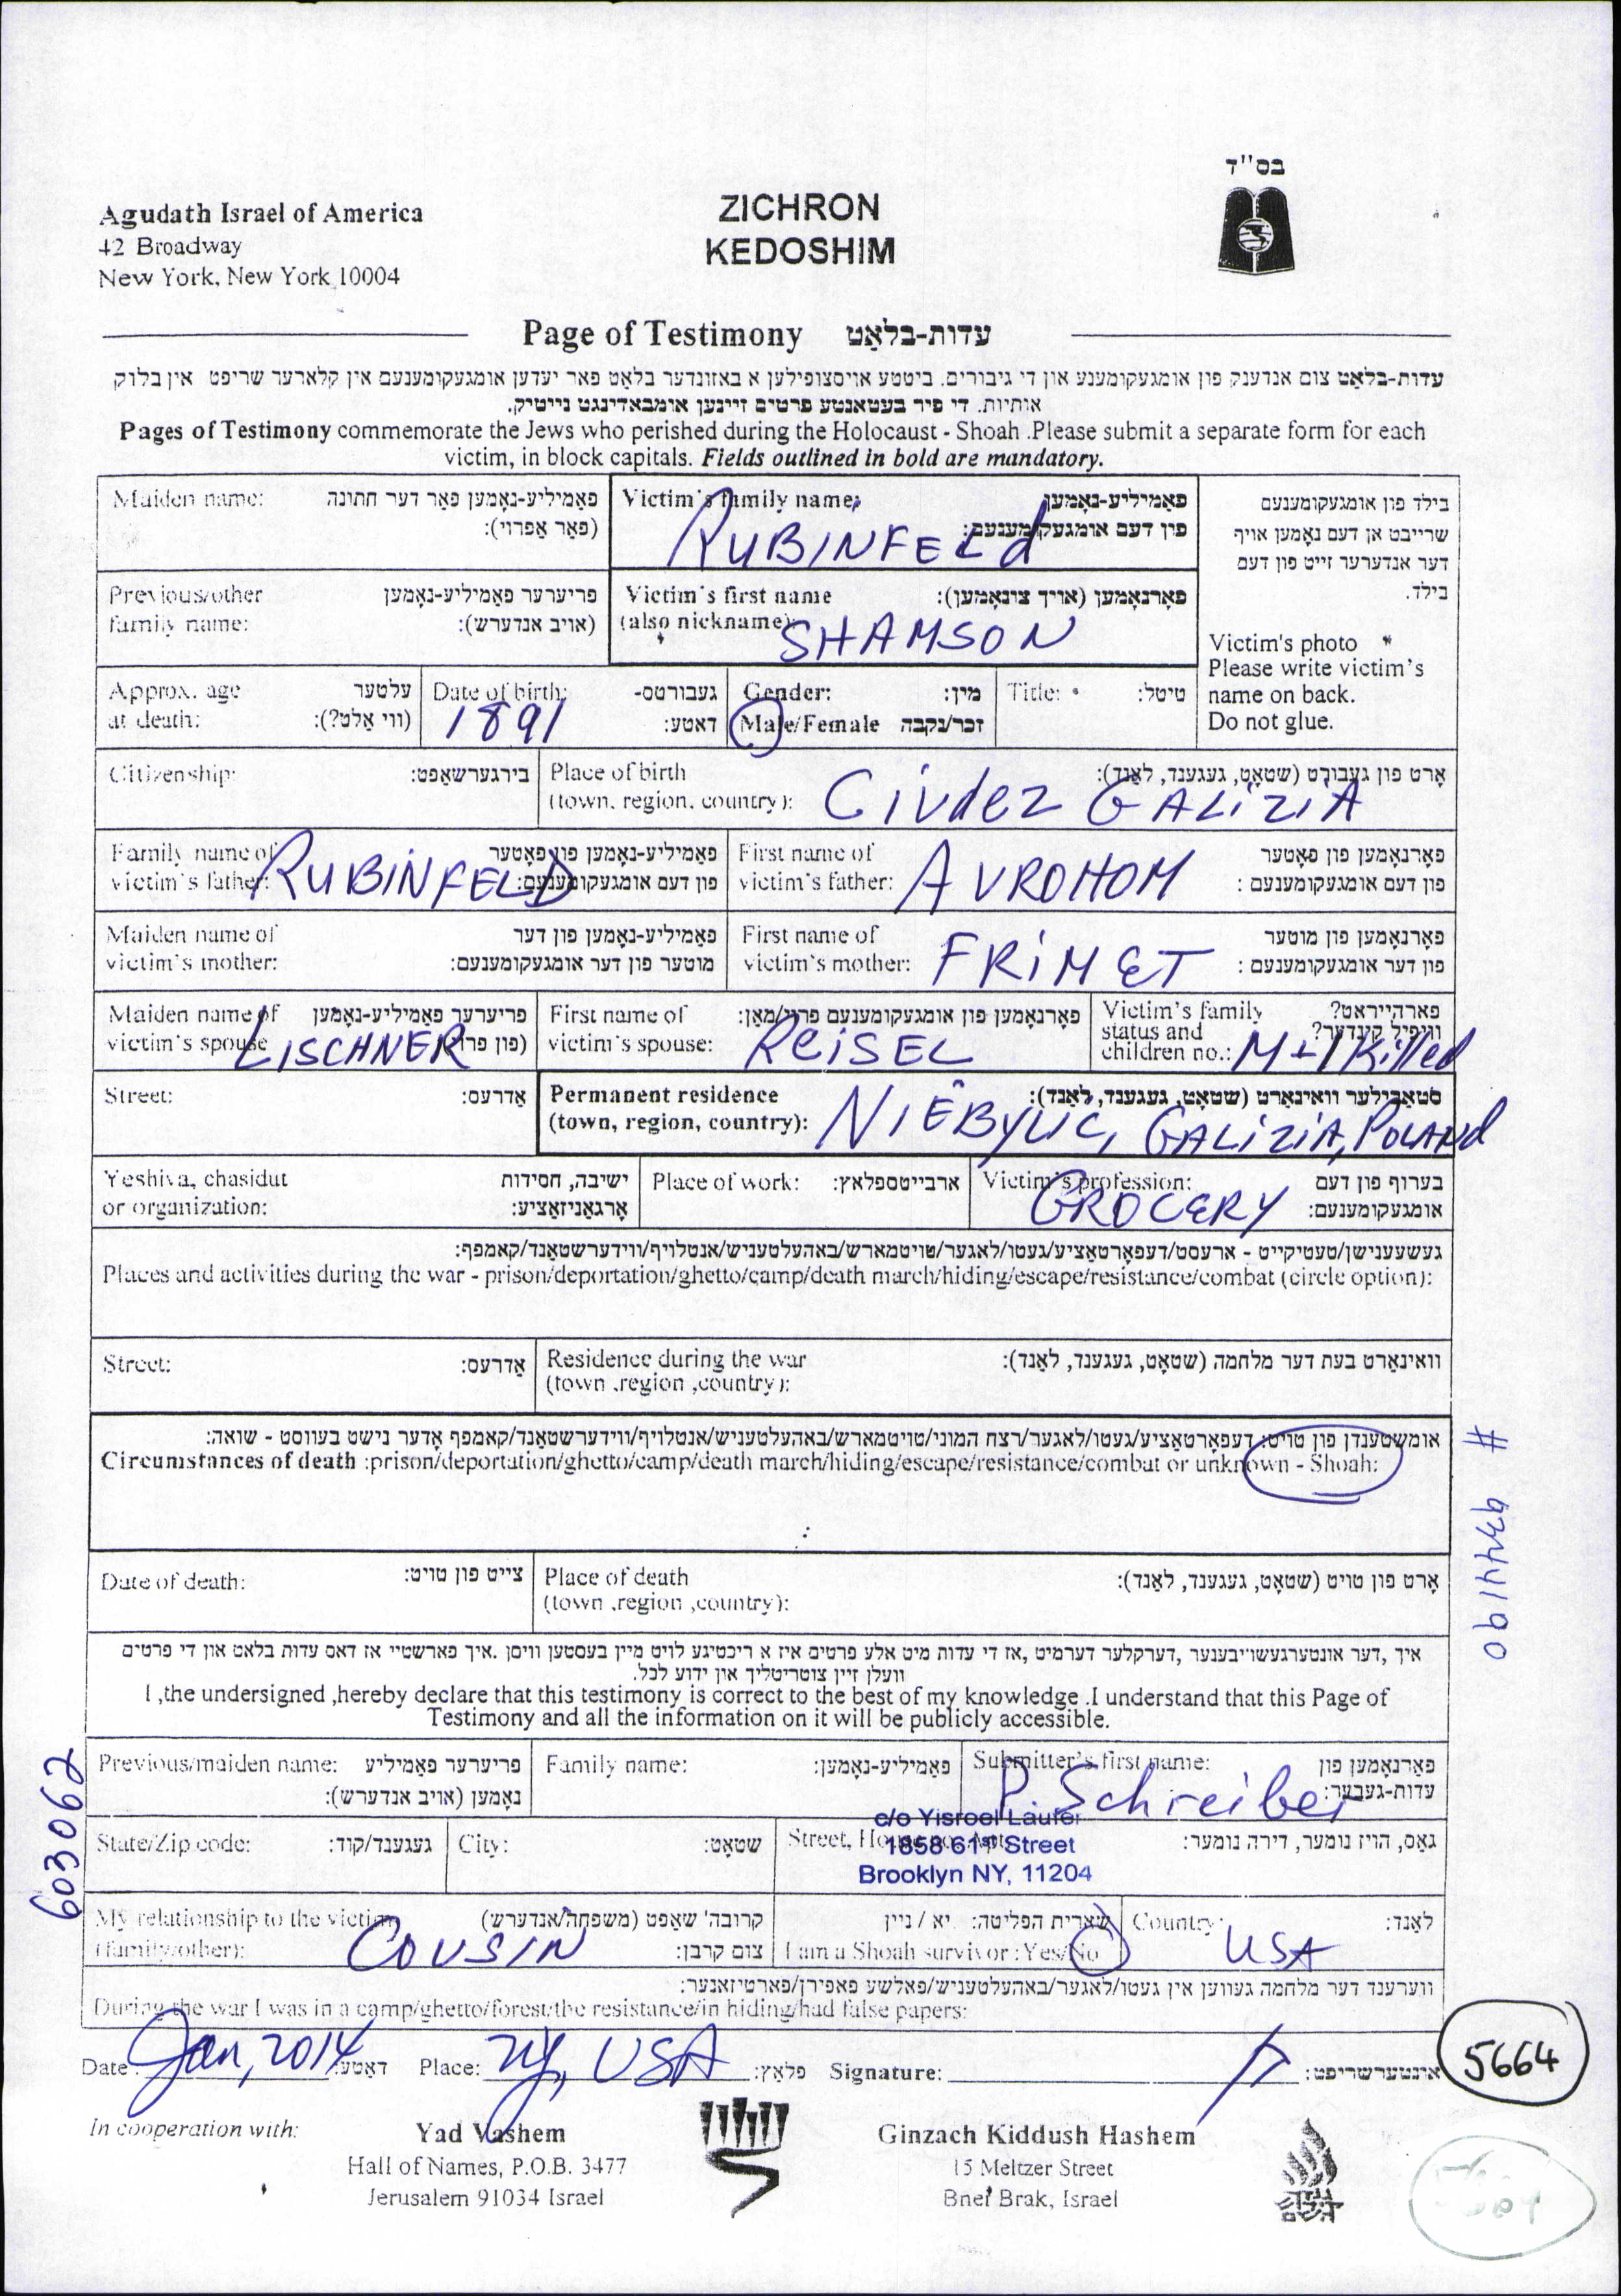 בס"ד
Agudath Israel of America
42 Broadway
New York, New York 10004
ZICHRON
KEDOSHIM
Page of Testimony עדות-בלאַט
עדות-בלאַט צום אנדענק פון אומגעקומענע און די גיבורים. ביטטע אויסצופילען א באזונדער בלאט פאר יעדען אומגעקומענעם אין קלארער שריפט אין בלוק
אותיות. די פיר בעטאנטע פרטים זיינען אומבאדינגט נייטיק.
Pages of Testimony commemorate the Jews who perished during the Holocaust - Shoah .Please submit a separate form for each
victim, in block capitals. Fields outlined in bold are mandatory.
Maiden name: פאַמיליע-נאָמען פאַר דער חתונה
(פאַר אַפרוי):
Victim's family name: פאַמיליע-נאָמען
פון דעם אומגעקומענעם:
RUBINFELd
בילד פון אומגעקומענעם
שרייבט אן דעם נאָמען אויף
דער אנדערער זייט פון דעם
בילד.
Previous/other פריערער פאַמיליע-נאָמען
family name: (אויב אנדערש):
Victim's first name פאָרנאָמען (אויך צונאָמען):
(also nickname):
SHAMSON
Victim's photo
Please write victim's
name on back.
Do not glue.
Approx. age עלטער
at death: (ווי אַלט?):
Date of birth: געבורטס-
דאַטע:
1891
Gender: מין:
Male/Female זכר/נקבה
Title: טיטל:
Citizenship: בירגערשאַפט:
Place of birth אָרט פון געבורט (שטאָט, געגענד, לאַנד):
(town, region, country):
Civdez GALiZiA
Family name of פאַמיליע-נאָמען פון פאָטער
victim's father: פון דעם אומגעקומענעם:
RUBiNFELD
First name of פאָרנאָמען פון פאָטער
victim's father: פון דעם אומגעקומענעם :
AVROHOM
Maiden name of פאַמיליע-נאָמען פון דער
victim's mother: מוטער פון דער אומגעקומענעם:
First name of פאָרנאָמען פון מוטער
victim's mother: פון דער אומגעקומענעם :
FRiMET
Maiden name of פריערער פאַמיליע-נאָמען
victim's spouse
LISCHNER
First name of פאָרנאָמען פון אומגעקומענעם פרוי/מאַן:
victim's spouse:
REiSEL
Victim's family פארהייראט?
status and וויפיל קינדער?
children no.: M + 1 Killed
Street: אַדרעס:
Permanent residence סטאַבילער וואוינאָרט (שטאָט, געגענד, לאַנד):
(town, region, country):
NIEBYLIC, GALiZiA, POLANd
Yeshiva, chasidut ישיבה, חסידות
or organization: אָרגאַניזאַציע:
Place of work: ארבייטספלאץ:
Victim's profession: בערוף פון דעם
אומגעקומענעם:
GROCERY
געשעענישן/טעטיקייט - ארעסט/דעפּאָרטאַציע/געטו/לאגער/טויטמארש/באהעלטעניש/אנטלויף/ווידערשטאַנד/קאמפף:
Places and activities during the war - prison/deportation/ghetto/camp/death march/hiding/escape/resistance/combat (circle option):
Street: אַדרעס:
Residence during the war וואוינאָרט בעת דער מלחמה (שטאָט, געגענד, לאַנד):
(town ,region ,country):
אומשטענדן פון טויט: דעפּאָרטאַציע/געטו/לאגער/רצח המוני/טויטמארש/באהעלטעניש/אנטלויף/ווידערשטאַנד/קאמפף אָדער נישט בעוווסט - שואה:
Circumstances of death :prison/deportation/ghetto/camp/death march/hiding/escape/resistance/combat or unknown - Shoah:
# 9344190
Date of death: צייט פון טויט:
Place of death אָרט פון טויט (שטאָט, געגענד, לאַנד):
(town ,region ,country):
איך ,דער אונטערגעשוייבענער ,דערקלער דערמיט ,אז די עדות מיט אלע פרטים איז א ריכטיגע לויט מיין בעסטען וויסן .איך פארשטיי אז דאס עדות בלאט און די פרטים
וועלן זיין צוטריטליך און ידוע לכל.
I ,the undersigned ,hereby declare that this testimony is correct to the best of my knowledge .I understand that this Page of
Testimony and all the information on it will be publicly accessible.
603062
Previous/maiden name: פריערער פאַמיליע
נאָמען (אויב אנדערש):
Family name: פאַמיליע-נאָמען:
Submitter's first name: פאָרנאָמען פון
עדות-געבער:
P. Schreiber
State/Zip code: געגענד/קוד:
City: שטאָט:
Street, גאס, הויז נומער, דירה נומער:
c/o Yisroel Laufer
1858 61st Street
Brooklyn NY, 11204
My relationship to the victim קרובה' שאפט (משפחה/אנדערש)
(family/other): צום קרבן:
COUSIN
שארית הפליטה: יא / ניין
I am a Shoah survivor :Yes/No
Country: לאַנד:
USA
ווערענד דער מלחמה געווען אין געטו/לאגער/באהעלטעניש/פאלשע פאפירן/פארטיזאנער:
During the war I was in a camp/ghetto/forest/the resistance/in hiding/had false papers:
Date: Jan, 2014 דאַטע: Place: NY, USA פלאַץ: Signature: אונטערשריפט:
5664
In cooperation with:
Yad Vashem
Hall of Names, P.O.B. 3477
Jerusalem 91034 Israel
Ginzach Kiddush Hashem
15 Meltzer Street
Bnei Brak, Israel